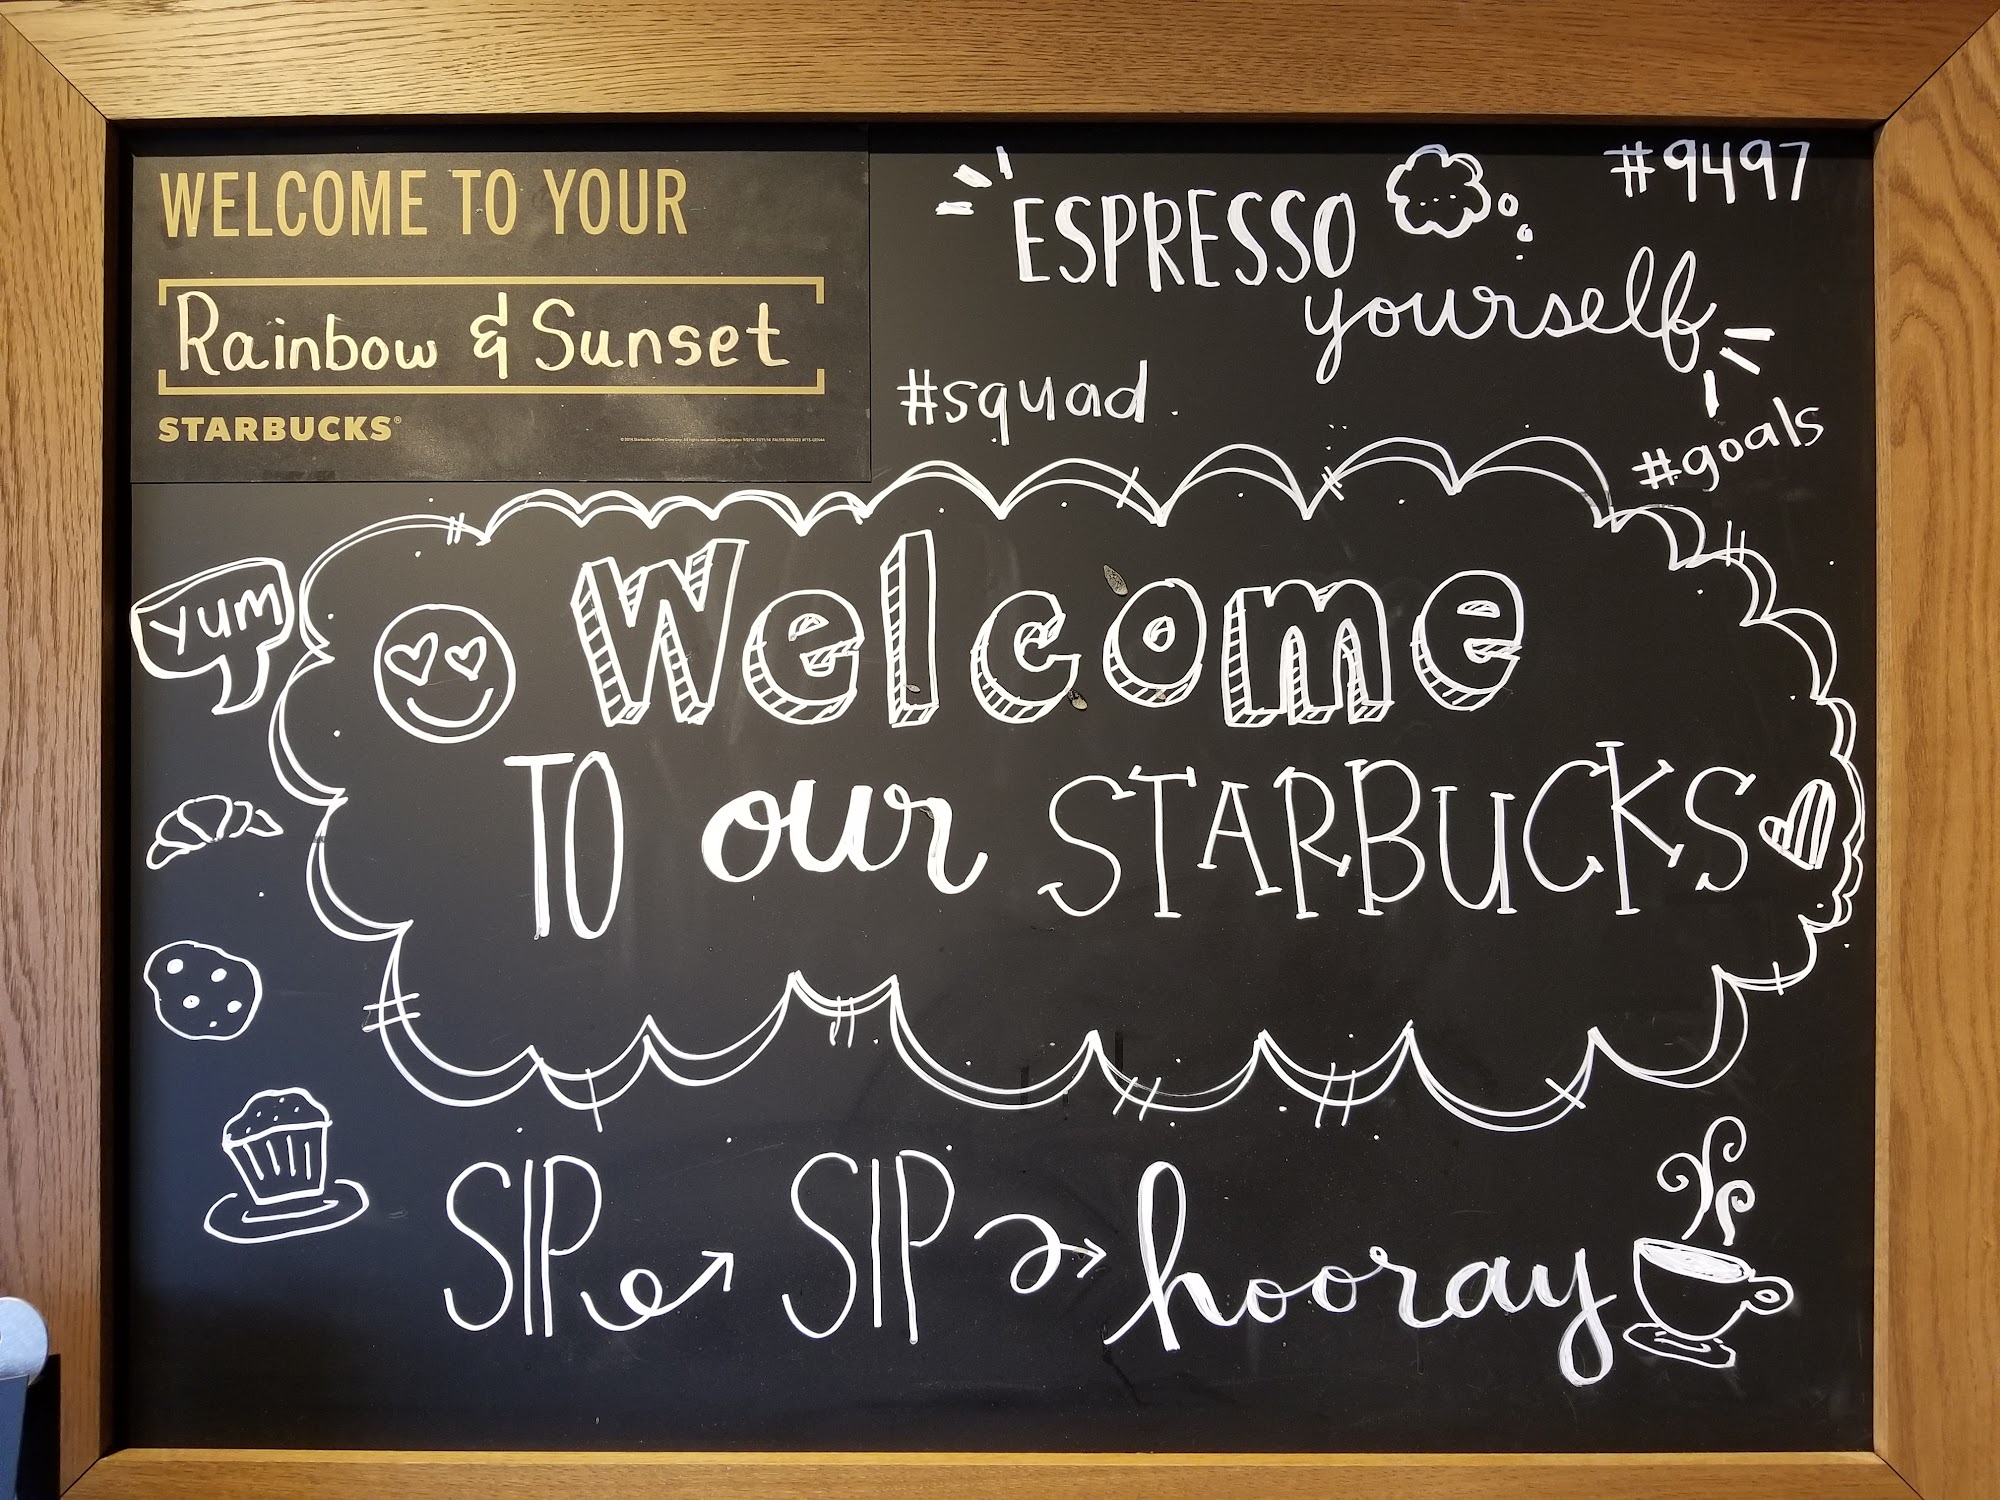 WELCOME TO YOUR
Rainbow & Sunset
STARBUCKS®
ESPRESSO
yourself
#9497
#squad
#goals
yum
Welcome
TO our STARBUCKS
SIP SIP hooray